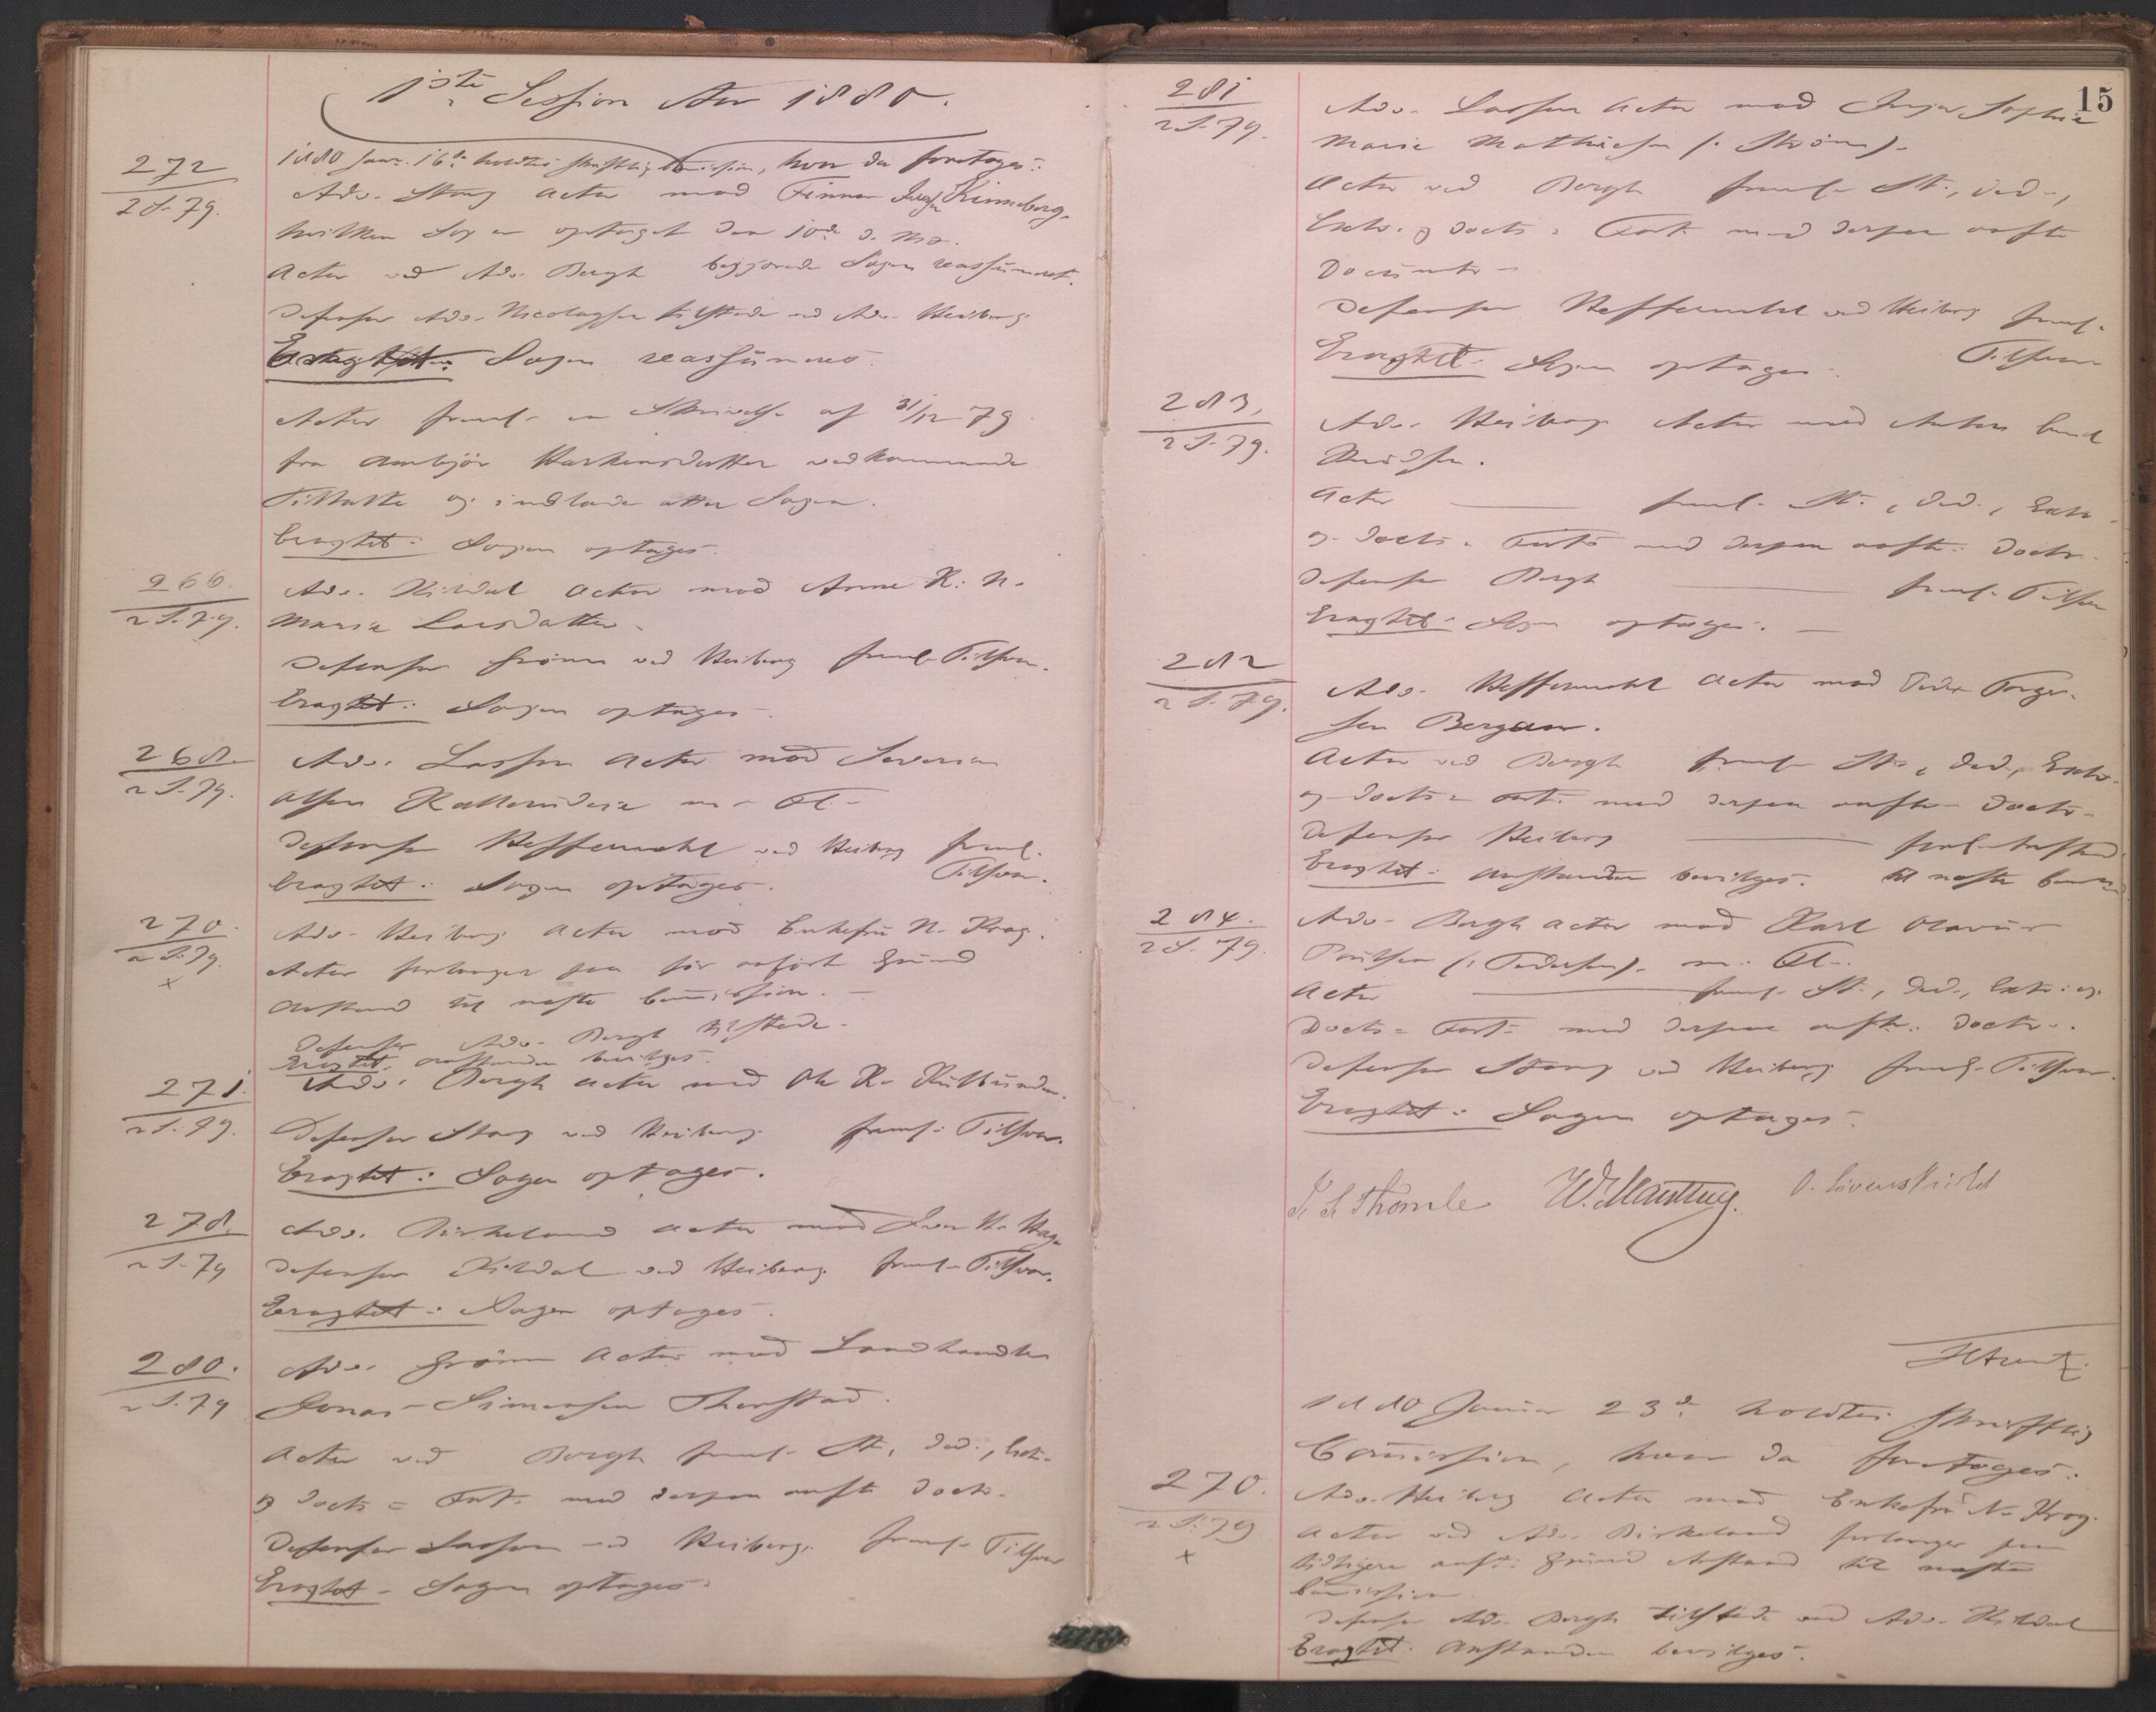 1ste Session Aar 1880.
272
2 S. 79.
1880 Janr. 16de holdtes skriftlig Commission, hvor da foretoges:
Adv. Stang Actor mod Finne Kinneberg
hvilken Sag er optaget den 10de d. Md.
Actor ved Adv. Bergh begjærede Sagen reassumeret.
Defensor Adv. Nicolaysen tilstede ved Adv. Heiberg
Eragtet: Sagen reassumeres.
Actor freml. en Skrivelse af 31/12 79
fra Ambjør Haakensdatter vedkommende
Tiltalte og indlader atter Sagen.
Eragtet: Sagen optages.
266.
2 S. 79.
Adv. Kildal Actor mod Anne K. N.
Marie Larsdatter.
Defensor Grönn ved Heiberg freml. Tilsvar.
Eragtet: Sagen optages.
268.
2 S. 79.
Adv. Lassen Actor mod Severin
Olsen m. Fl.
Defensor Heffermehl ved Heiberg freml.
Tilsvar.
Eragtet: Sagen optages.
270.
2 S. 79.
x
Adv. Heiberg Actor mod Enkefru N. Krog.
Actor forlanger paa før anført Grund
Anstand til næste Commission.
Defensor Adv. Bergh tilstede.
Eragtet: Anstanden bevilges.
271.
2 S. 79.
Adv. Bergh Actor mod Ole K.
Defensor Stang ved Heiberg freml. Tilsvar.
Eragtet: Sagen optages.
278.
2 S. 79
Adv. Birkeland Actor mod Iver H. Hage
Defensor Kildal ved Heiberg freml. Tilsvar.
Eragtet: Sagen optages.
280.
2 S. 79
Adv. Grönn Actor mod Landhandler
Jonas Simonsen Thorstad.
Actor ved Bergh freml. St., Ded., Extr.
og Docts = Fort. med derpaa anft. Doctr.
Defensor Lassen ved Heiberg freml. Tilsvar
Eragtet: Sagen optages.
15
281
2 S. 79.
Adv. Lassen Actor mod Inga Sophie
Marie Mathiesen (: Ström).
Actor ved Bergh freml. St., Ded.,
Extr. og Docts = Fort. med derpaa anfte
Documtr.
Defensor Heffermehl ved Heiberg freml.
Tilsvar
Eragtet: Sagen optages.
283.
2 S. 79.
Adv. Heiberg Actor mod Anton Emil
Knudsen.
Actor freml. St., Ded., Extr.
og Docts = Fort. med derpaa anft. Doctr.
Defensor Bergh freml. Tilsvar
Eragtet: Sagen optages.
282
2 S. 79.
Adv. Heffermehl Actor mod Peder Torger-
sen Bergan.
Actor ved Bergh freml. St., Ded., Extr.
og Docts = Fort. med derpaa anft. Doctr.
Defensor Heiberg forl. Anstand.
Eragtet: Anstanden bevilges. til næste Comm.
284.
2 S. 79.
Adv. Bergh Actor mod Karl Olavus
Poulsen (: Pedersen). m. Fl.
Actor freml. St., Ded., Extr. og
Docts = Fort. med derpaa anft. Doctr.
Defensor Stang ved Heiberg freml. Tilsvar.
Eragtet: Sagen optages.
Thomle W. Manthey. O. Løvenskiold
1880 Januar 23de holdtes skriftlig
Commission, hvor da foretoges:
270.
2 S. 79.
x
Adv. Heiberg Actor mod Enkefru N. Krog.
Actor ved Adv. Birkeland forlanger paa
tidligere anft. Grund Anstand til næste
Commission.
Defensor Adv. Bergh tilstede ved Adv. Kildal
Eragtet: Anstanden bevilges.